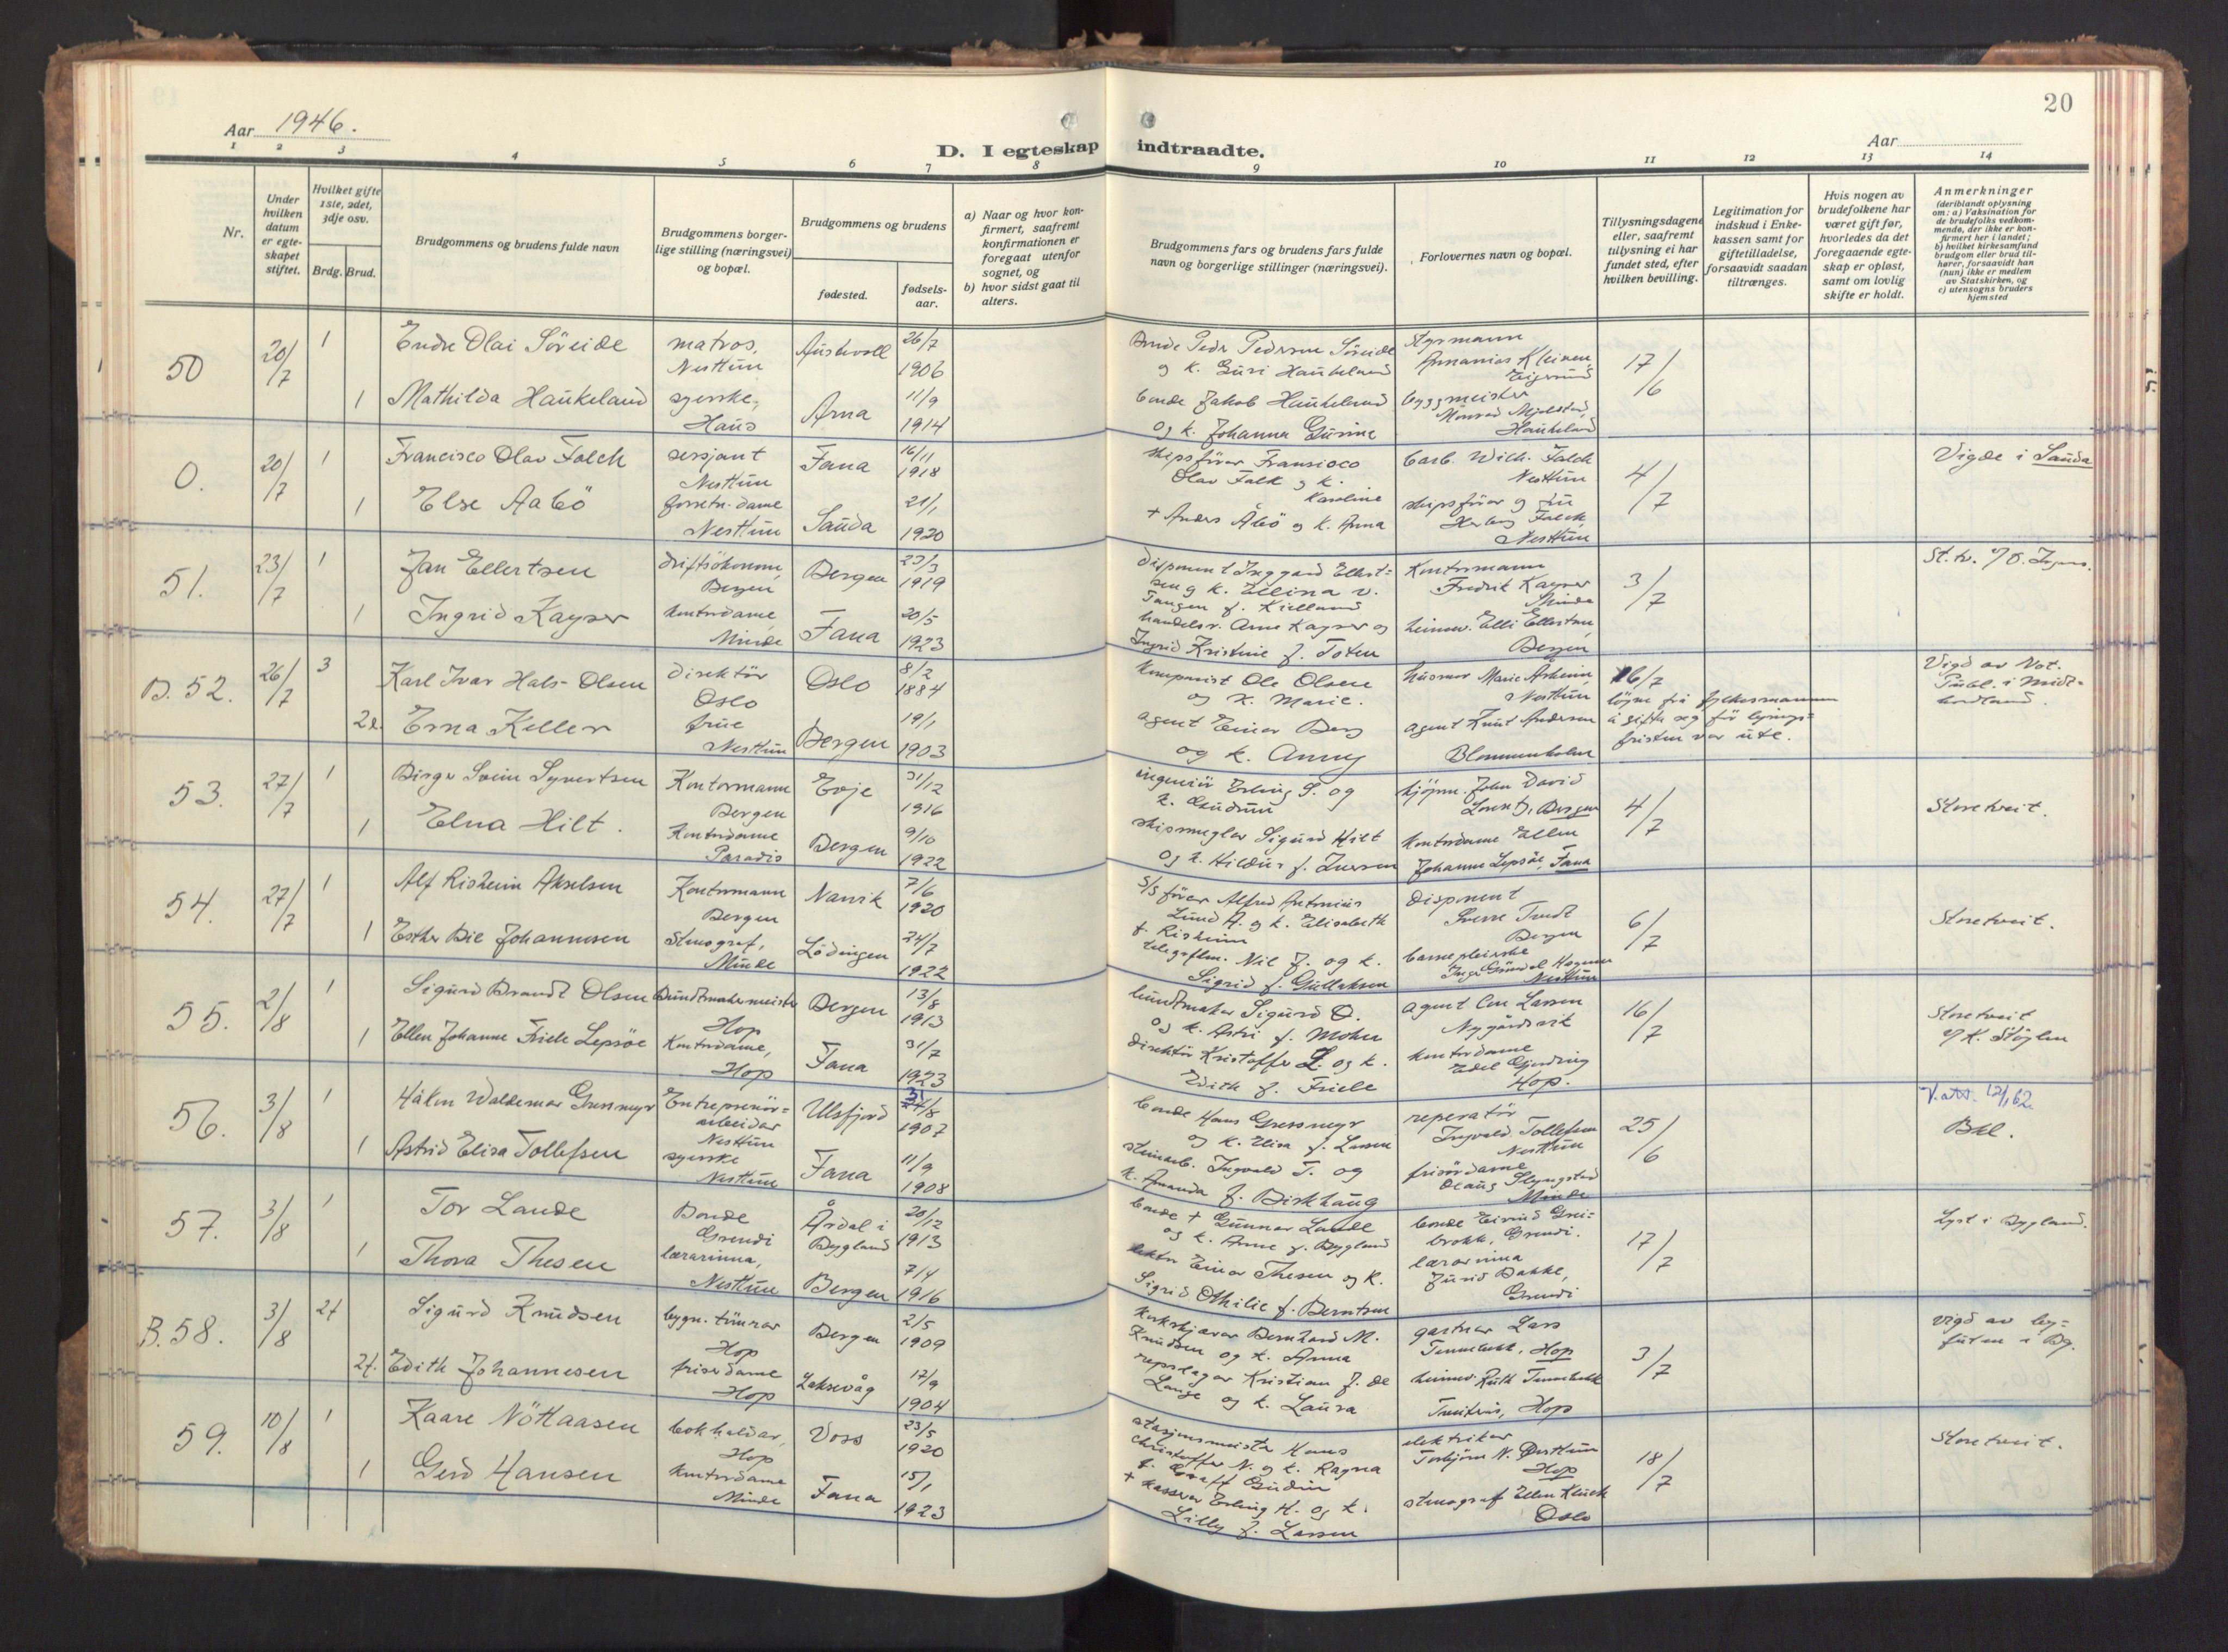 20
Aar 1946.
D. I egteskap indtraadte.
Aar
1 2 3 4 5 6 7 8 9 10 11 12 13 14
Nr.
Under hvilken datum er egte-skapet stiftet.
Hvilket gifte 1ste, 2det, 3dje osv.
Brdg. Brud.
Brudgommens og brudens fulde navn
Brudgommens borger-lige stilling (næringsvei) og bopæl.
Brudgommens og brudens
fødested.
fødsels-aar.
a) Naar og hvor kon-firmert, saafremt konfirmationen er foregaat utenfor sognet, og
b) hvor sidst gaat til alters.
Brudgommens fars og brudens fars fulde navn og borgerlige stillinger (næringsvei).
Forlovernes navn og bopæl.
Tillysningsdagene eller, saafremt tillysning ei har fundet sted, efter hvilken bevilling.
Legitimation for indskud i Enke-kassen samt for giftetilladelse, forsaavidt saadan tiltrænges.
Hvis nogen av brudefolkene har været gift før, hvorledes da det foregaaende egte-skap er opløst, samt om lovlig skifte er holdt.
Anmerkninger
(deriblandt oplysning om: a) Vaksination for de brudefolks vedkom-mende, der ikke er kon-firmert her i landet; b) hvilket kirkesamfund brudgom eller brud til-hører, forsaavidt han (hun) ikke er medlem av Statskirken, og c) utensogns bruders hjemsted
50 20/7 1 Endre Olai Søreide matros, Nesttun Austevoll 26/7 1906
Bonde Peder Pederson Søreide og k. Guri Haukeland
styrmann Ananias Kleiven
17/6
1 Mathilda Haukeland syerske, Haus Arna 11/9 1914
bonde Jakob Haukeland og k. Johanna Gurine
byggmeister Monrad Mjelstad, Haukeland
0. 20/7 1 Francisco Olav Falck sersjant Nesttun Fana 16/11 1918
skipsfører Fransisco Olav Falk og k. Karoline
barb. Wilh. Falck Nesttun
4/7
Vigde i Sauda
1 Else Aabö forretn. dame Nesttun Sauda 21/1 1920
+ Anders Åbö og k. Anna
skipsförar og Herborg Falck Nesttun
51. 23/7 1 Jan Ellertsen driftsökonom, Bergen Bergen 23/3 1919
disponent Inggard Ellert-sen og k. Ellina v. Tangen f. Kielland
Kontormann Fredrik Kayser Minde
3/7
1 Ingrid Kayser kontordame, Minde Fana 20/5 1923
handelsr. Arne Kayser og Ingrid Kristine f. Toten
heimev. Elli Ellertsen, Bergen
B. 52. 26/7 3 Karl Ivar Hals-Olsen direktör Oslo Oslo 8/2 1884
komponist Ole Olsen og k. Marie.
husmor Marie Askeim Nesttun
16/7
löyve frå fylkesmannen å gifta seg för lysings-fristen var ute.
Vigd av Not. Publ. i Midt-hordland.
2 Erna Keller frue Nesttun Bergen 19/1 1903
agent Einar Berg og k. Anny
agent Knut Andersen Blommenholm
53. 27/7 1 Birger Svein Syvertsen Kontormann Bergen Evje 31/12 1916
ingeniör Erling S. og k. Gudrun
hjöpm. John David Lorentz, Bergen
4/7
Storetveit.
1 Elna Hilt. Kontordame Paradis Bergen 9/10 1922
skipsmegler Sigurd Hilt og k. Hildur f. Iversen
kontordame Ellen Johanne Lepsöe, Fana
54. 27/7 1 Alf Risheim Akselsen Kontormann Bergen Narvik 7/6 1920
S/S förer Alfred Antonius Lund A. og k. Elisabeth f. Risheim
disponent Sverre Tredt Bergen
6/7
Storetveit.
1 Esther Bie Johannesen Stenograf, Minde Lödingen 24/7 1922
telegrafbm. Nil J. og k. Sigrid f. Gullaksen
barnepleierske Inga Gundel Hagenes Nesttun
55. 2/8 1 Sigurd Brandt Olsen Bundtmakermeister Hop Bergen 13/8 1913
bundtmaker Sigurd O. og k. Astri f. Mohn
agent Carl Larsen Nygårdsvik
16/7
Storetveit v/ K. Stöylen
1 Ellen Johanne Friele Lepsöe Kontordame, Hop Fana 31/7 1923
direktör Kristoffer L. og k. Edith f. Friele
kontordame Edel Gjerding Hop.
56. 3/8 1 Håkon Waldemar Gressmyr Entreprenör-arbeidar Nesttun Ulsfjord 31/8 1907
bonde Hans Gressmyr og k. Elisa f. Larsen
reperatör Ingvald Tollefsen Nesttun
25/6
V.att. 12/1 62.
Bkl.
1 Astrid Elisa Tollefsen syerske Nesttun Fana 11/9 1908
steinarb. Ingvald T. og k. Amanda f. Birkhaug
frisördame Slyngstad Minde
57. 3/8 1 Tor Lande Bonde Grendi Årdal i Bygland 20/12 1913
bonde + Gunnar Lande og k. Anne f. Bygland
bonde Eivind Grei-brokk, Grendi.
17/7
Lyst i Bygland.
1 Thora Thesen lærarinna, Nesttun Bergen 7/4 1916
lektor Einar Thesen og k. Sigrid Othilie f. Berntsen
lærarinna Jurid Bakke, Grendi
B. 58. 3/8 2f Sigurd Knudsen bygn. tömrer Hop Bergen 2/5 1909
korkskjærer Bernhard M. Knudsen og k. Anna
gartner Lars Tennebekk, Hop
3/7
vigd av by-futen i Bg.
2f. Edith Johannesen friserdame Hop Laksevåg 17/9 1904
repslager Kristian J. de Lange og k. Laura
heimev. Ruth Tennebekk Hop
59. 10/8 1 Kaare Nöttaasen bokhaldar, Hop Voss 23/5 1920
stasjonsmeister Hans Christoffer N. og k. Ragna f. Graff Gudim
elektriker Torbjörn N. Østtun Hop
18/7
Storetveit.
1 Gerd Hansen kontordame Minde Fana 15/1 1923
+ kasserer Erling H. og k. Lilly f. Larsen
stenograf Ellen Kluck Oslo